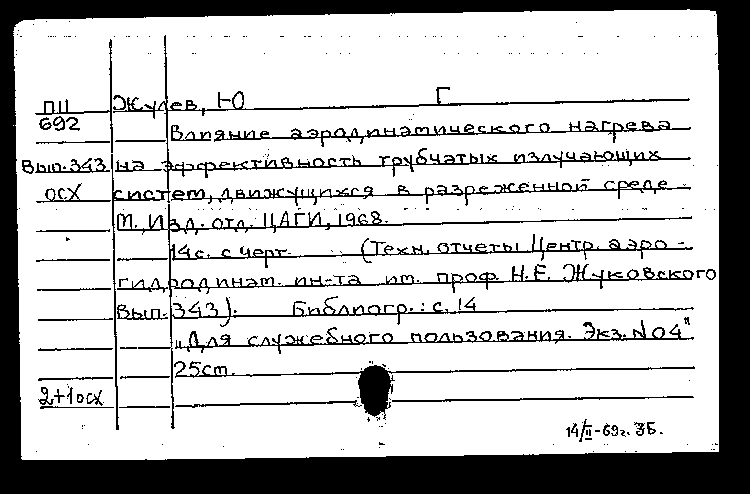 ПЦ Жулев, Ю Г
692
Влияние аэродинамического нагрева
Вып.343 на эффективность трубчатых излучающих
осх систем, движущихся в разреженной среде.
М., Изд. отд. ЦАГИ, 1968.
14с. с черт. (Техн. отчеты Центр. аэро-
гидродинам. ин-та им. проф. Н.Е. Жуковского
Вып. 343). Библиогр.: с. 14
„Для служебного пользования. Экз. N 04"
25cm.
2+1осх
14/II-69г. ЗБ.